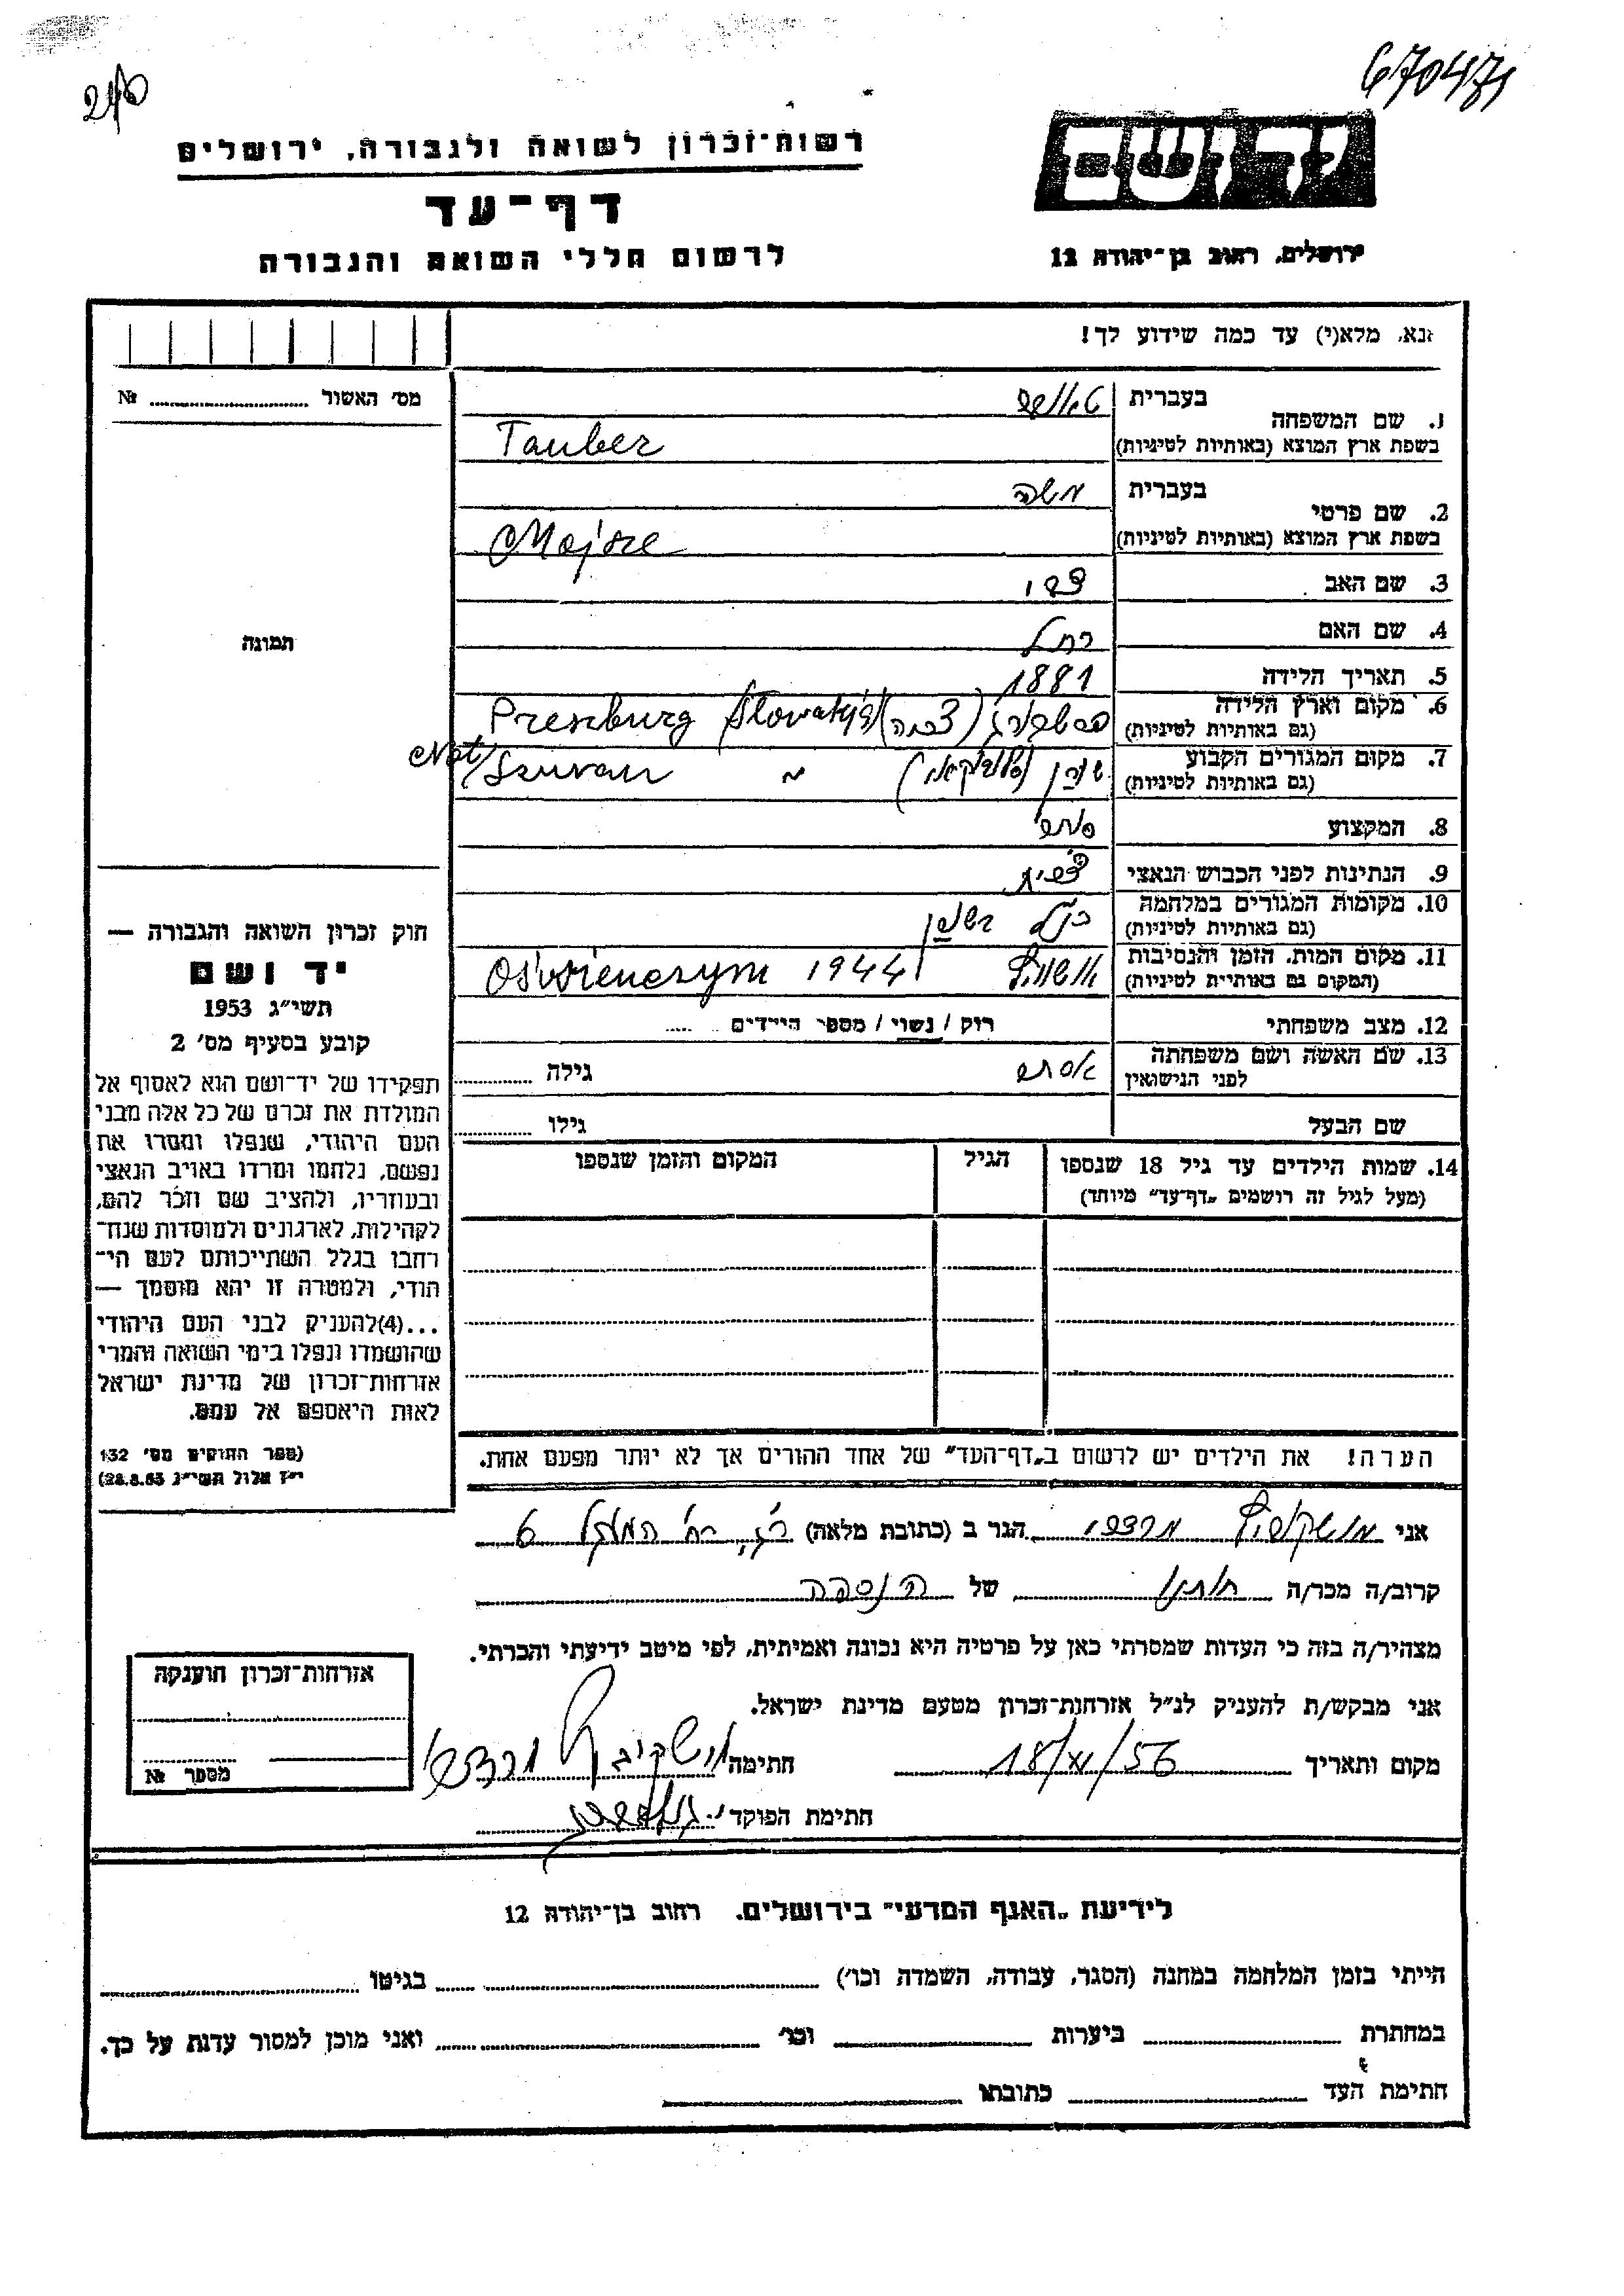 670471
240
רשות־זכרון לשואה ולגבורה, ירושלים
דף־עד
לרשום חללי השואה והגבורה
יד ושם
ירושלים, רחוב בן־יהודה 12
נא, מלא(י) עד כמה שידוע לך!
מס׳ האשור № ........
1. שם המשפחה
בעברית טאובר
בשפת ארץ המוצא (באותיות לטיניות) Tauber
2. שם פרטי
בעברית משה
בשפת ארץ המוצא (באותיות לטיניות) Mojsze
3. שם האב צבי
4. שם האם רחל
5. תאריך הלידה 1881
6. מקום וארץ הלידה (גם באותיות לטיניות) Preszburg Slovakija
7. מקום המגורים הקבוע (גם באותיות לטיניות) Szuran "
8. המקצוע סוחר
9. הנתינות לפני הכבוש הנאצי
10. מקומות המגורים במלחמה (גם באותיות לטיניות) כנ"ל
11. מקום המות, הזמן והנסיבות (המקום גם באותיות לטיניות) אושויץ 1944 Oświenczym
12. מצב משפחתי רוק / נשוי / מספר הילדים .....
13. שם האשה ושם משפחתה לפני הנישואין אסתר גילה ........
שם הבעל גילו ........
14. שמות הילדים עד גיל 18 שנספו
(מעל לגיל זה רושמים „דף־עד” מיוחד)
הגיל
המקום והזמן שנספו
הערה! את הילדים יש לרשום ב„דף־העד” של אחד ההורים אך לא יותר מפעם אחת.
תמונה
חוק זכרון השואה והגבורה —
יד ושם
תשי״ג 1953
קובע בסעיף מס׳ 2
תפקידו של יד־ושם הוא לאסוף אל
המולדת את זכרם של כל אלה מבני
העם היהודי, שנפלו ומסרו את
נפשם, נלחמו ומרדו באויב הנאצי
ובעוזריו, ולהציב שם וזכר להם,
לקהילות, לארגונים ולמוסדות שנח־
רבו בגלל השתייכותם לעם הי־
הודי, ולמטרה זו יהא מוסמך —
...(4)להעניק לבני העם היהודי
שהושמדו ונפלו בימי השואה והמרי
אזרחות־זכרון של מדינת ישראל
לאות היאספם אל עמם.
(ספר החוקים מס׳ 132
י״ז אלול תשי״ג 28.8.53)
אני מושקוביץ מרדכי הגר ב (כתובת מלאה) 6
קרוב/ה מכר/ה חותנו של הנספה
מצהיר/ה בזה כי העדות שמסרתי כאן על פרטיה היא נכונה ואמיתית, לפי מיטב ידיעתי והכרתי.
אני מבקש/ת להעניק לנ״ל אזרחות־זכרון מטעם מדינת ישראל.
מקום ותאריך 18/ /56 חתימה מושקוביץ מרדכי
חתימת הפוקד
אזרחות־זכרון הוענקה
מספר №
לידיעת „האגף המדעי” בירושלים, רחוב בן־יהודה 12
הייתי בזמן המלחמה במחנה (הסגר, עבודה, השמדה וכו׳) ........ בגיטו ........
במחתרת ........ ביערות ........ וכו׳ ........ ואני מוכן למסור עדות על כך.
חתימת העד ........ כתובתו ........